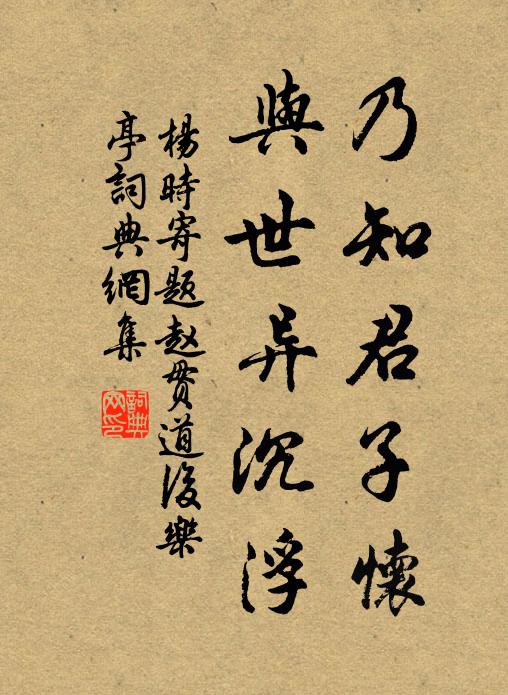 乃知君子懷
與世异沉浮
楊時寄題赵貫道後樂
亭詞典網集
詞典网印